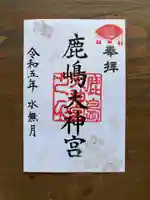 奉拝
鹿嶋大神宮
令和五年 水無月